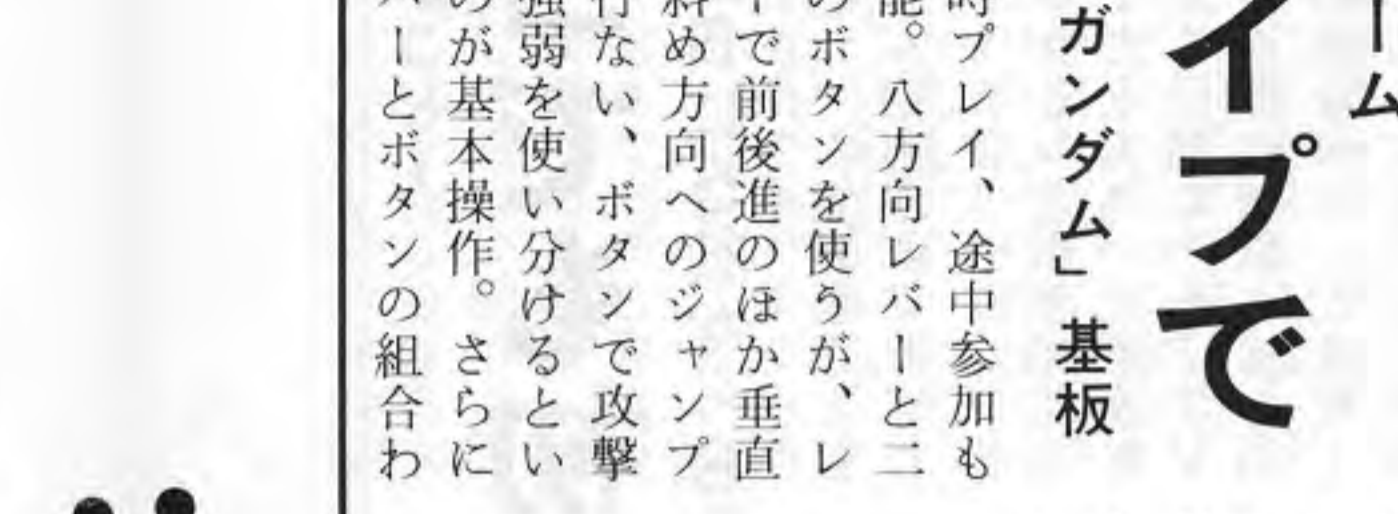 ーム
イプで
ガンダム」基板
時プレイ、途中参加も
能。八方向レバーと二
のボタンを使うが、レ
ーで前後進のほか垂直
斜め方向へのジャンプ
行ない、ボタンで攻撃
強弱を使い分けるとい
のが基本操作。さらに
バーとボタンの組合わ